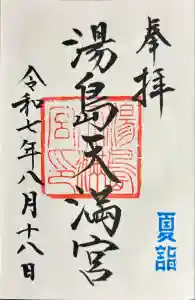 奉拝
湯島天満宮
令和七年八月十八日
夏詣